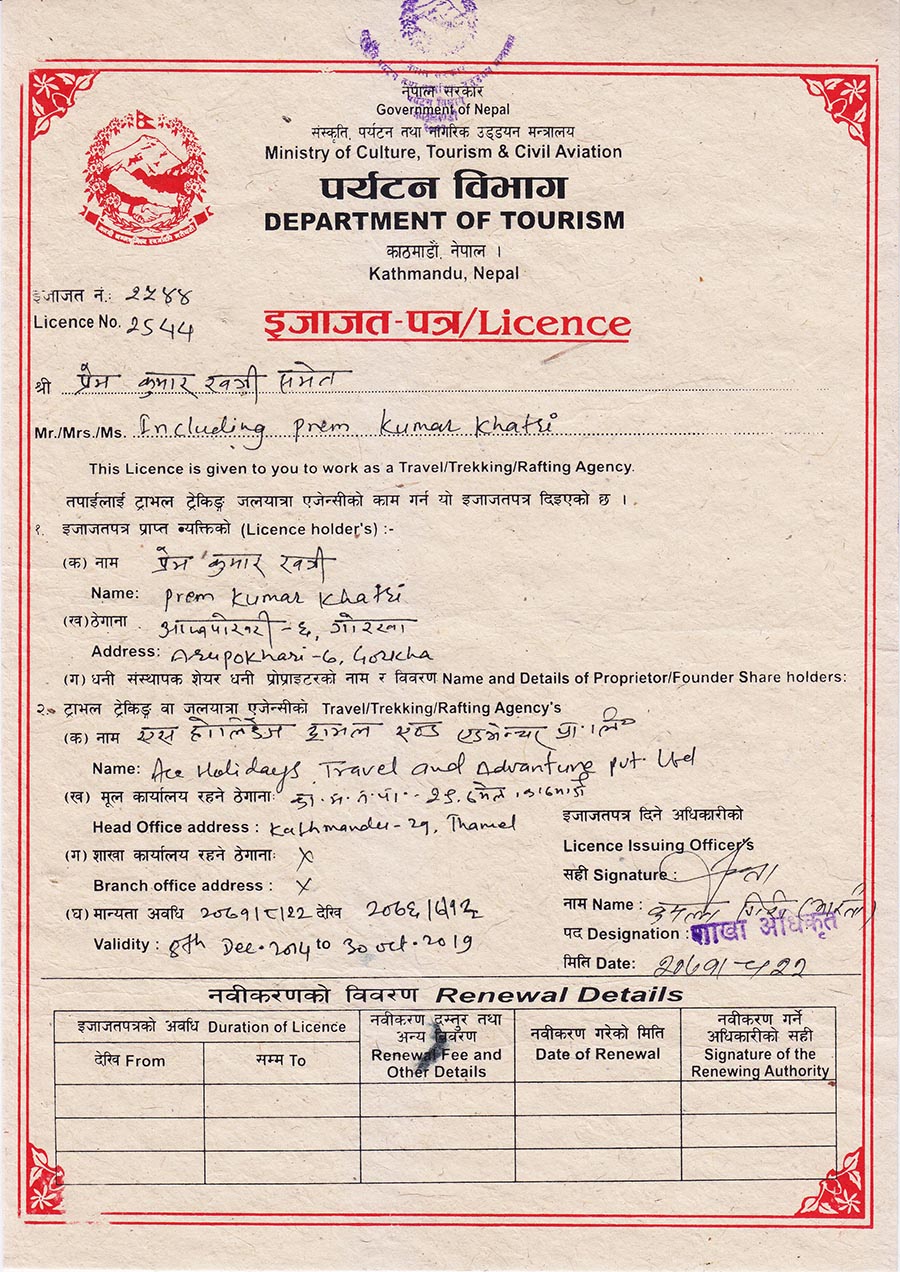 नेपाल सरकार
Government of Nepal
संस्कृति, पर्यटन तथा नागरिक उड्डयन मन्त्रालय
Ministry of Culture, Tourism & Civil Aviation
पर्यटन विभाग
DEPARTMENT OF TOURISM
काठमाडौं, नेपाल ।
Kathmandu, Nepal
इजाजत नं.: २५४४
Licence No. 2544
इजाजत-पत्र/Licence
श्री प्रेम कुमार खत्री समेत
Mr./Mrs./Ms. Including Prem Kumar Khatri
This Licence is given to you to work as a Travel/Trekking/Rafting Agency.
तपाईलाई ट्राभल ट्रेकिङ्ग जलयात्रा एजेन्सीको काम गर्न यो इजाजतपत्र दिइएको छ ।
१. इजाजतपत्र प्राप्त व्यक्तिको (Licence holder's) :-
(क) नाम प्रेम कुमार खत्री
Name: Prem Kumar Khatri
(ख) ठेगाना आरुपोखरी-६, गोरखा
Address: Arupokhari-6, Gorkha
(ग) धनी संस्थापक शेयर धनी प्रोप्राइटरको नाम र विवरण Name and Details of Proprietor/Founder Share holders:
२. ट्राभल ट्रेकिङ्ग वा जलयात्रा एजेन्सीको Travel/Trekking/Rafting Agency's
(क) नाम एस होलिडेज ट्राभल एण्ड एडभेन्चर प्रा. लि.
Name: Ace Holidays Travel and Advanture Pvt. Ltd
(ख) मूल कार्यालय रहने ठेगानाः का.म.न.पा.-२९ ठमेल, काठमाडौं
Head Office address : Kathmandu-29, Thamel
(ग) शाखा कार्यालय रहने ठेगानाः X
Branch office address : X
(घ) मान्यता अवधि २०७१/८/२२ देखि २०७६/७/१३
Validity : 8th Dec. 2014 to 30 Oct. 2019
इजाजतपत्र दिने अधिकारीको
Licence Issuing Officer's
सही Signature :
नाम Name : कमला गिरी
पद Designation : शाखा अधिकृत
मिति Date: २०७१-८-२२
नवीकरणको विवरण Renewal Details
इजाजतपत्रको अवधि Duration of Licence
देखि From
सम्म To
नवीकरण दस्तुर तथा
अन्य विवरण
Renewal Fee and
Other Details
नवीकरण गरेको मिति
Date of Renewal
नवीकरण गर्ने
अधिकारीको सही
Signature of the
Renewing Authority